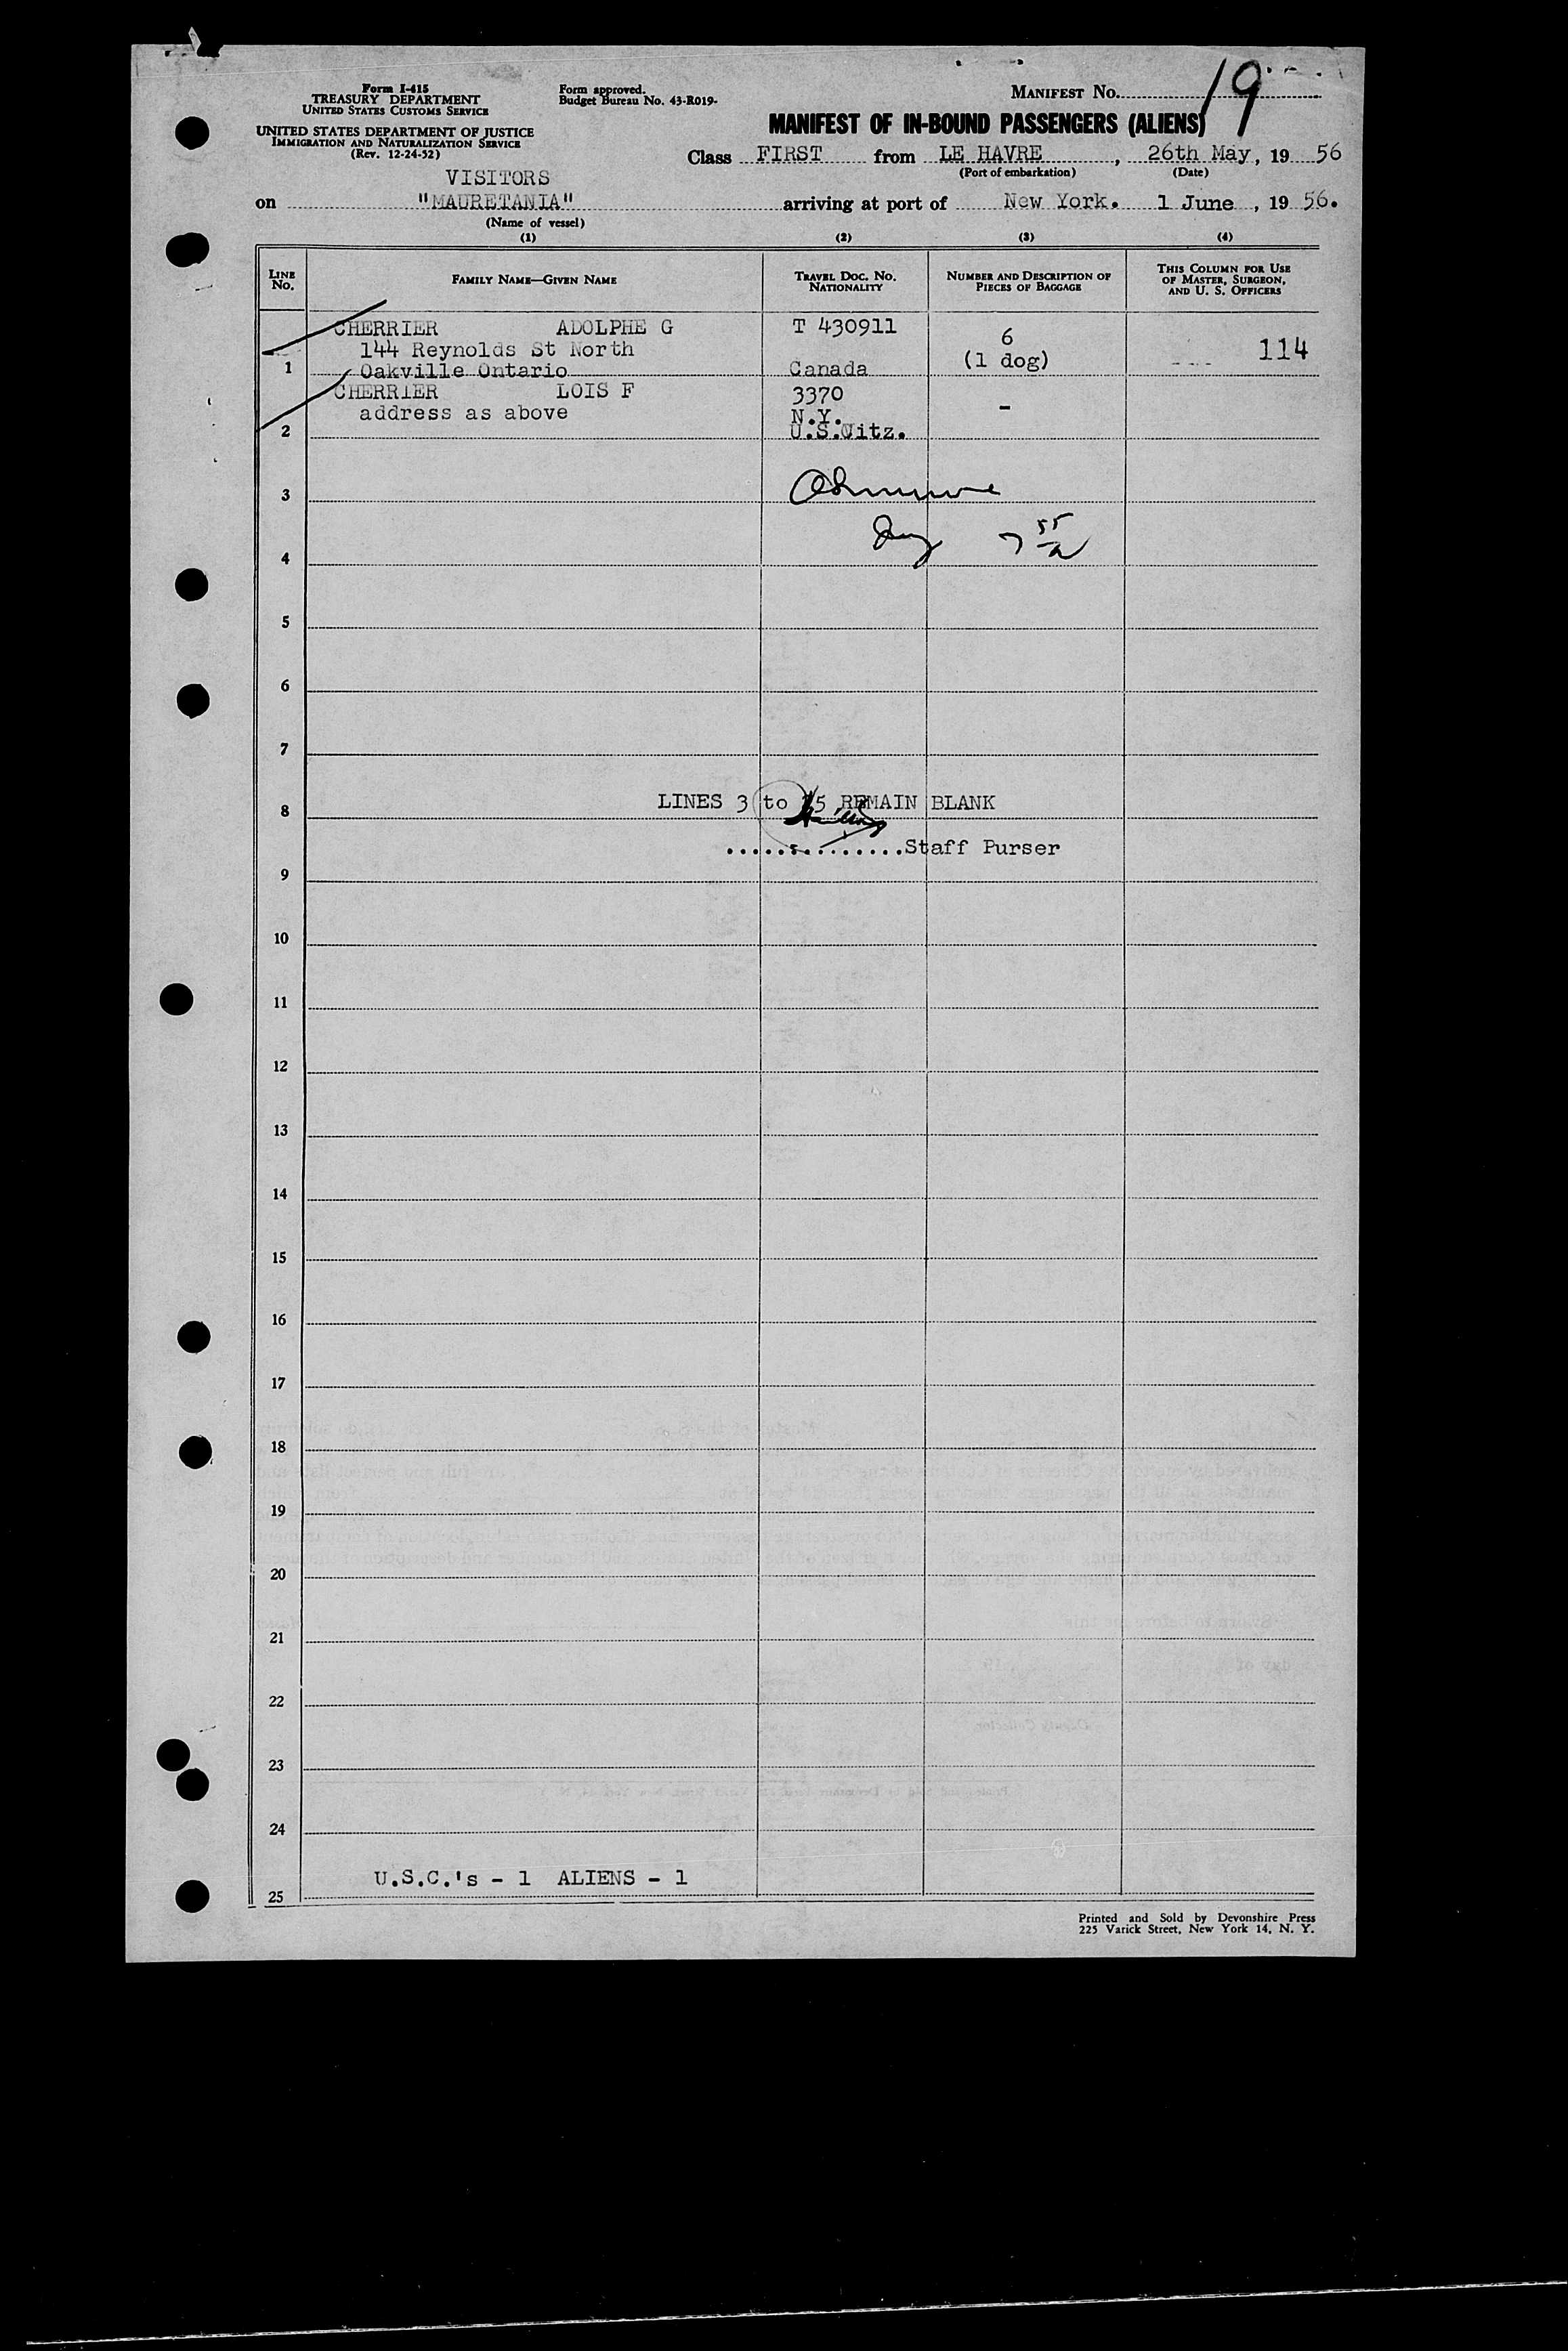 19
Form I-415
TREASURY DEPARTMENT
UNITED STATES CUSTOMS SERVICE
UNITED STATES DEPARTMENT OF JUSTICE
IMMIGRATION AND NATURALIZATION SERVICE
(Rev. 12-24-52)
Form approved.
Budget Bureau No. 43-R019-
MANIFEST NO.
MANIFEST OF IN-BOUND PASSENGERS (ALIENS)
Class FIRST from LE HAVRE, 26th May, 19 56
(Port of embarkation) (Date)
VISITORS
on "MAURETANIA" arriving at port of New York. 1 June, 19 56.
(Name of vessel)
(1) (2) (3) (4)
LINE NO. FAMILY NAME—GIVEN NAME TRAVEL DOC. NO. NATIONALITY NUMBER AND DESCRIPTION OF PIECES OF BAGGAGE THIS COLUMN FOR USE OF MASTER, SURGEON, AND U. S. OFFICERS
CHERRIER ADOLPHE G T 430911 6 114
144 Reynolds St North (1 dog)
1 Oakville Ontario Canada
CHERRIER LOIS F 3370 -
address as above N.Y.
2 U.S.Citz.
3
4
5
6
7
8 LINES 3 to 25 REMAIN BLANK
..............Staff Purser
9
10
11
12
13
14
15
16
17
18
19
20
21
22
23
24
U.S.C.'s - 1 ALIENS - 1
25
Printed and Sold by Devonshire Press
225 Varick Street, New York 14, N. Y.